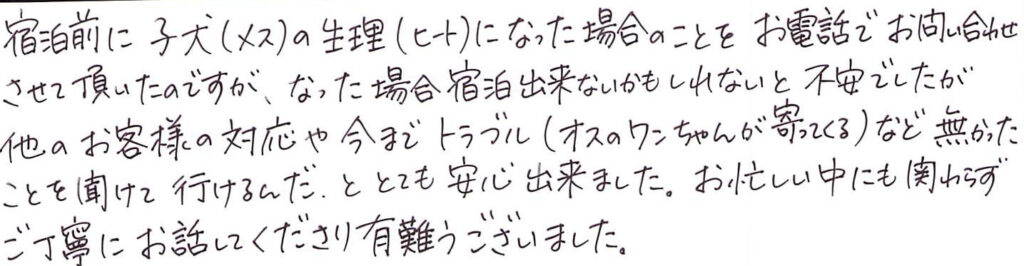 宿泊前に子犬(メス)の生理(ヒート)になった場合のことをお電話でお問い合わせ
させて頂いたのですが、なった場合宿泊出来ないかもしれないと不安でしたが
他のお客様の対応や今までトラブル(オスのワンちゃんが寄ってくる)など無かった
ことを聞けて行けるんだ、ととても安心出来ました。お忙しい中にも関わらず
ご丁寧にお話してくださり有難うございました。